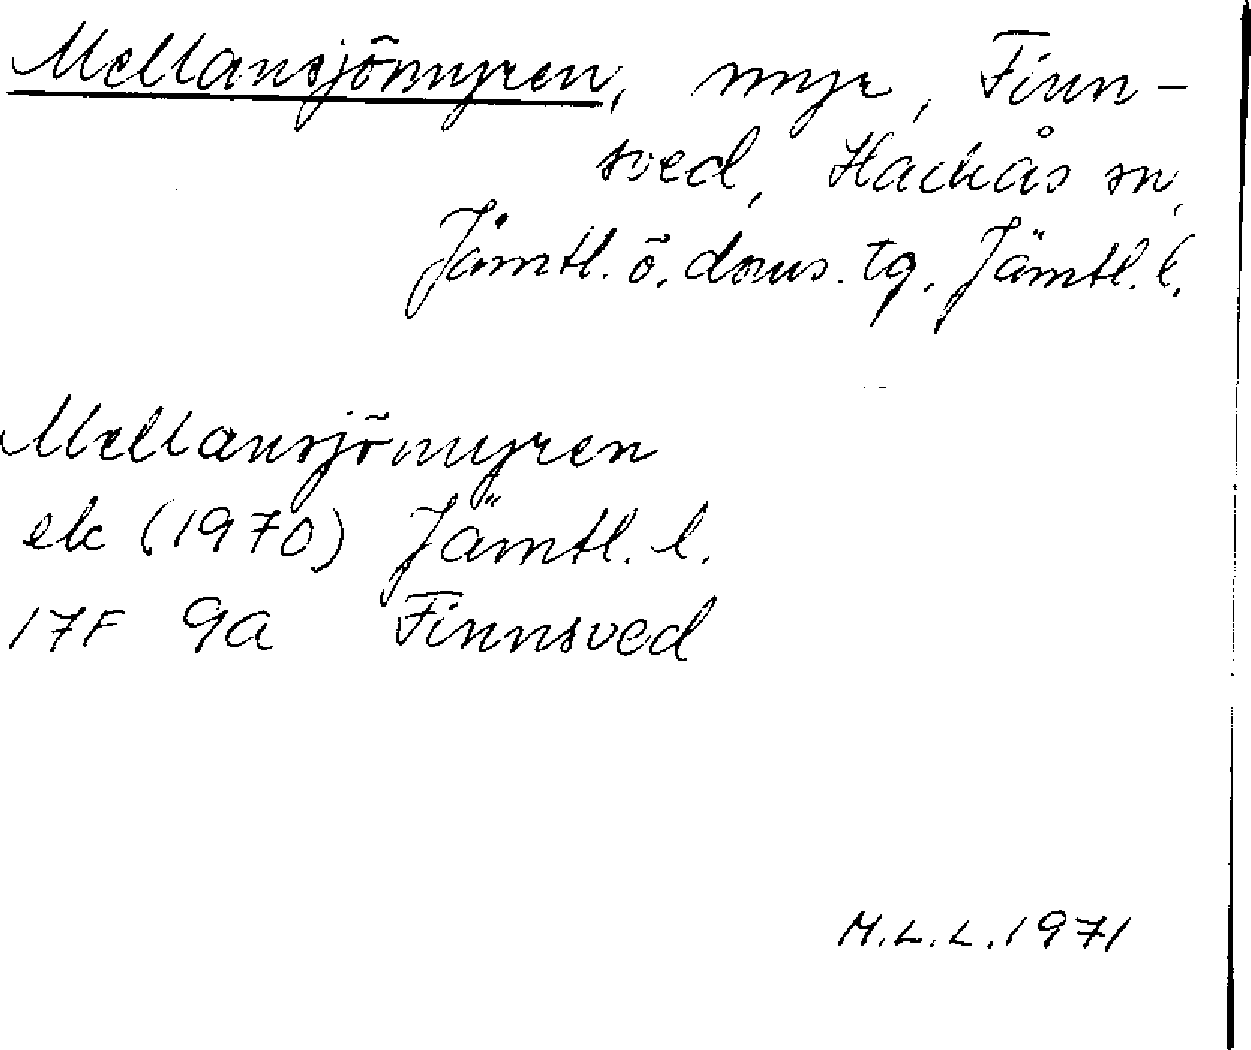 Mellansjömyren, myr, Finn-
sved, Hackås sn,
Jämtl. ö. doms. tg, Jämtl. l.
Mellansjömyren
ek (1970) Jämtl. l.
17F 9a Finnsved
M.L.L. 1971